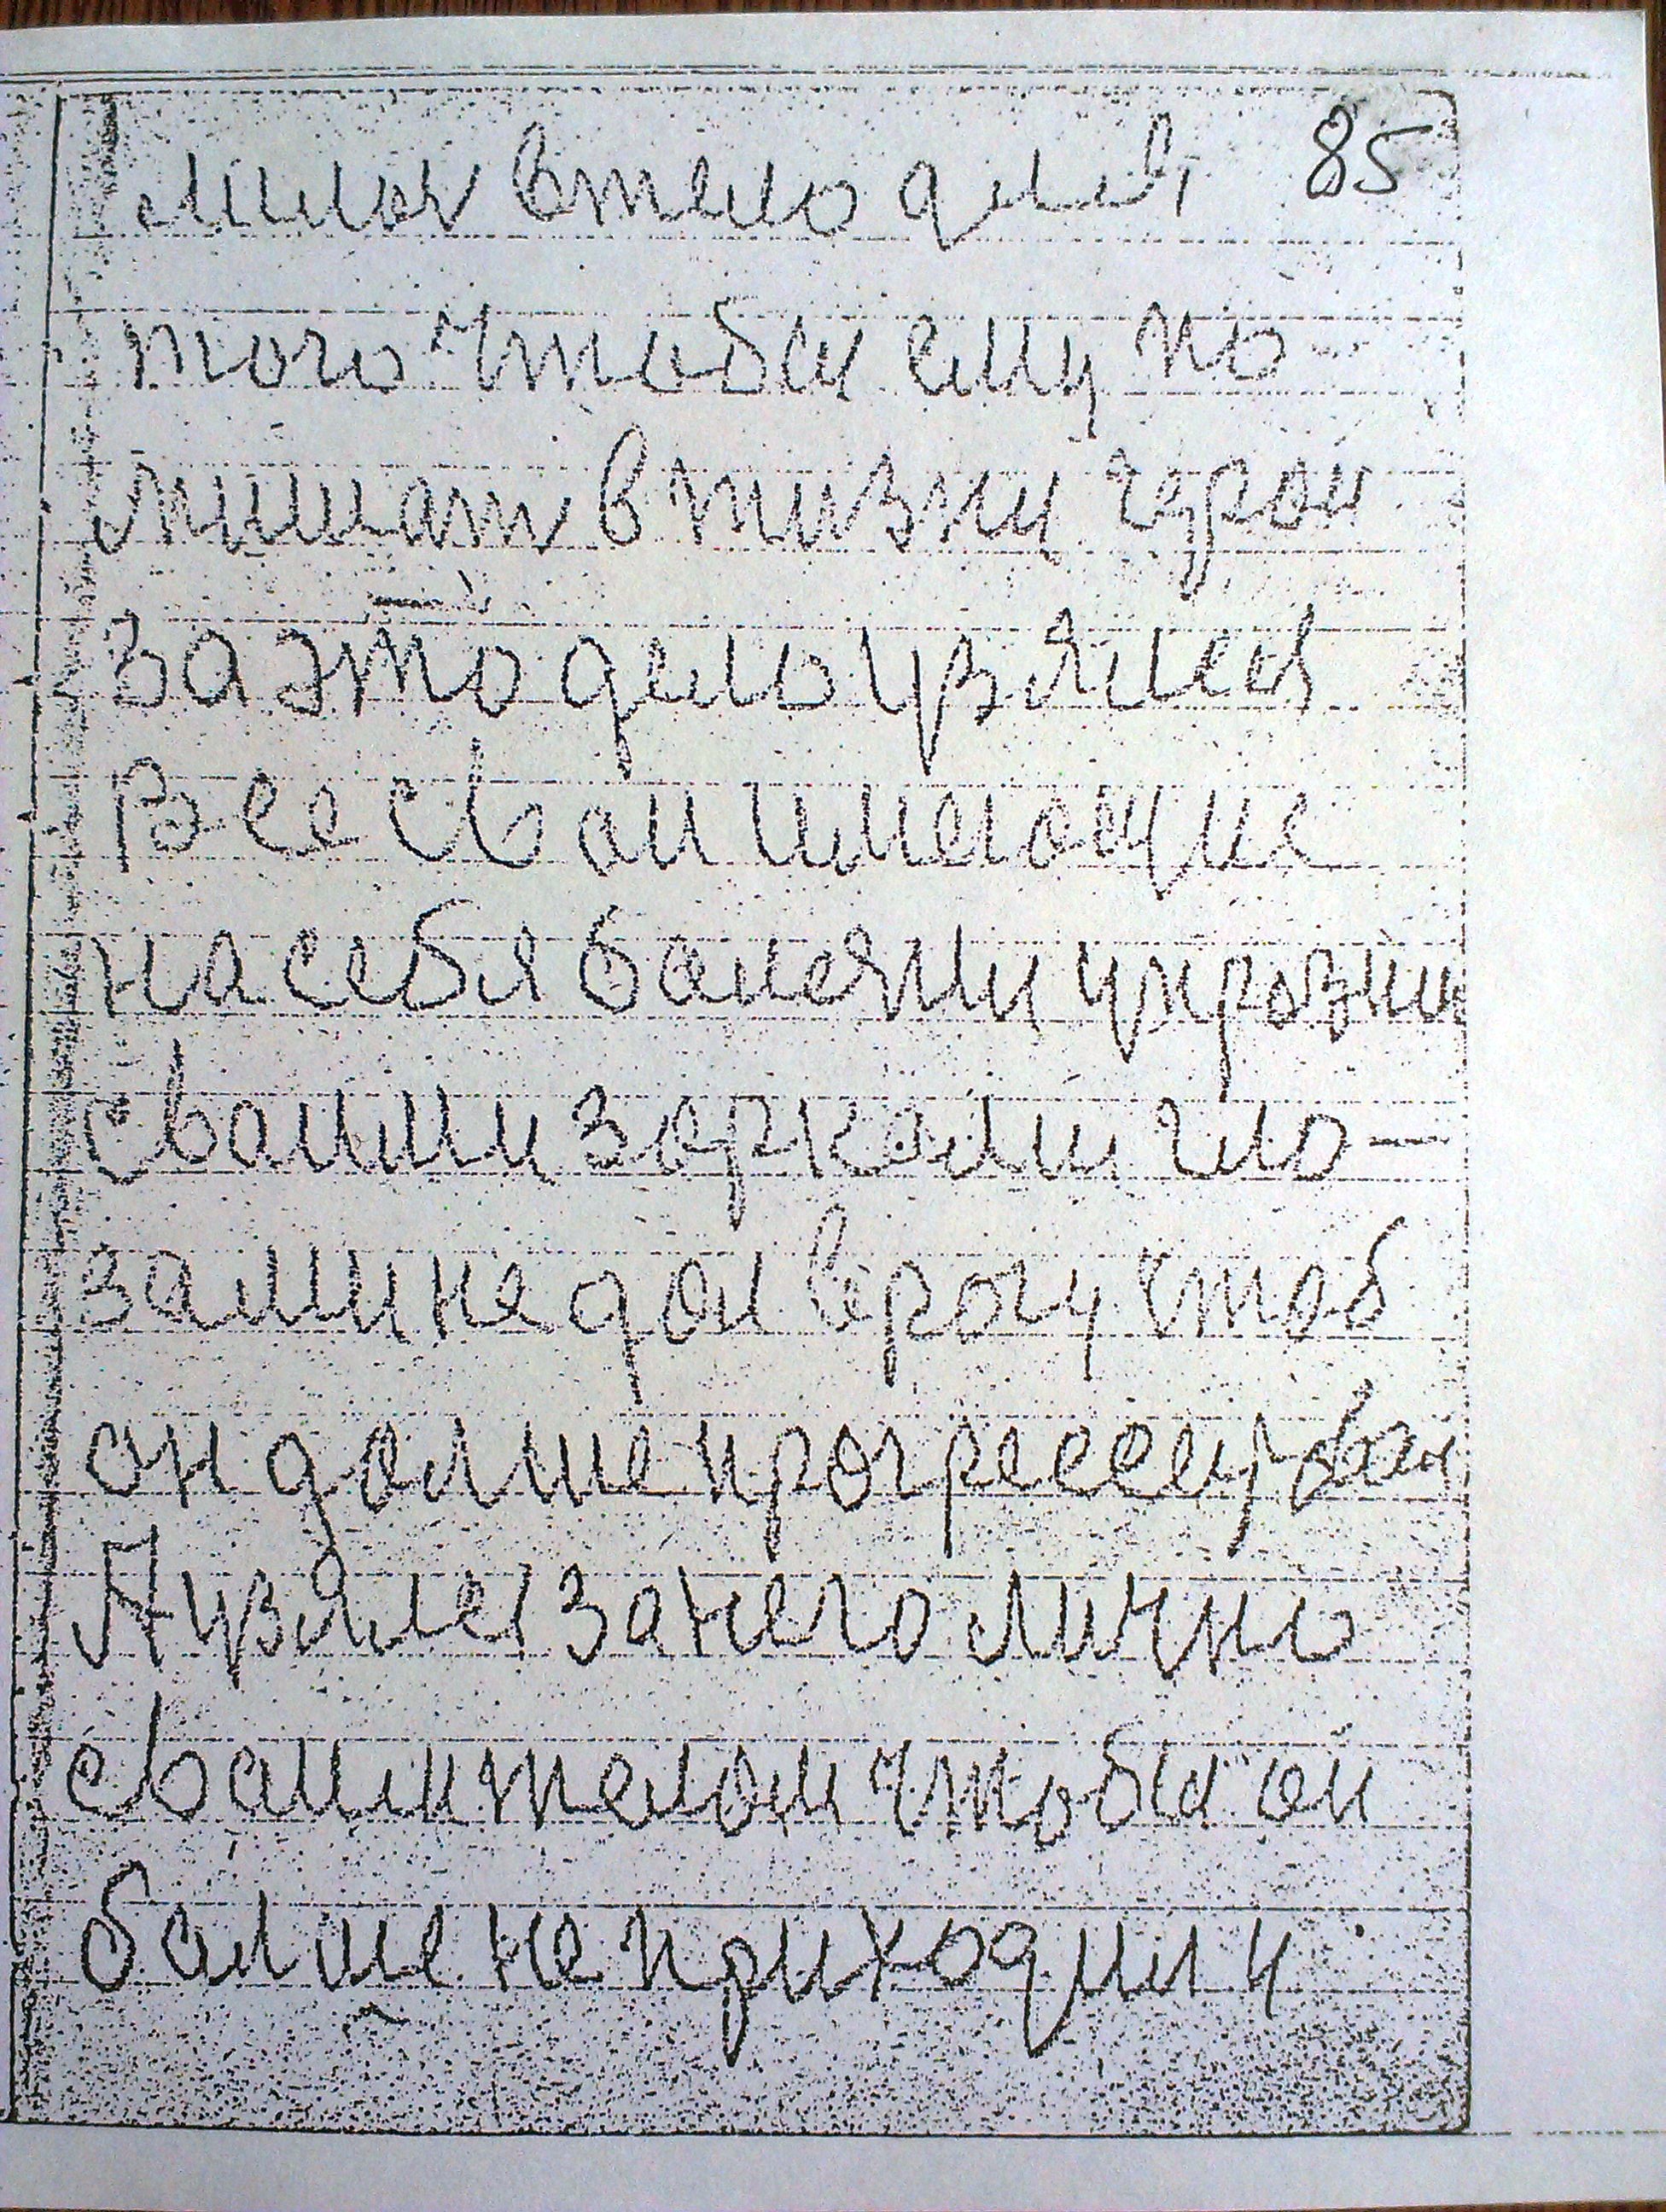 85
в тело для
того чтобы ему по
мишат в тизни герои
За это дело увялся
Все свои имеюще
на себя балезни угрозни
сваими зоркоми гло-
зами не дай врогу стоб
он далше прогресееирвал
А увялся за него лично
сваим телом чтобы он
балше не приходил к